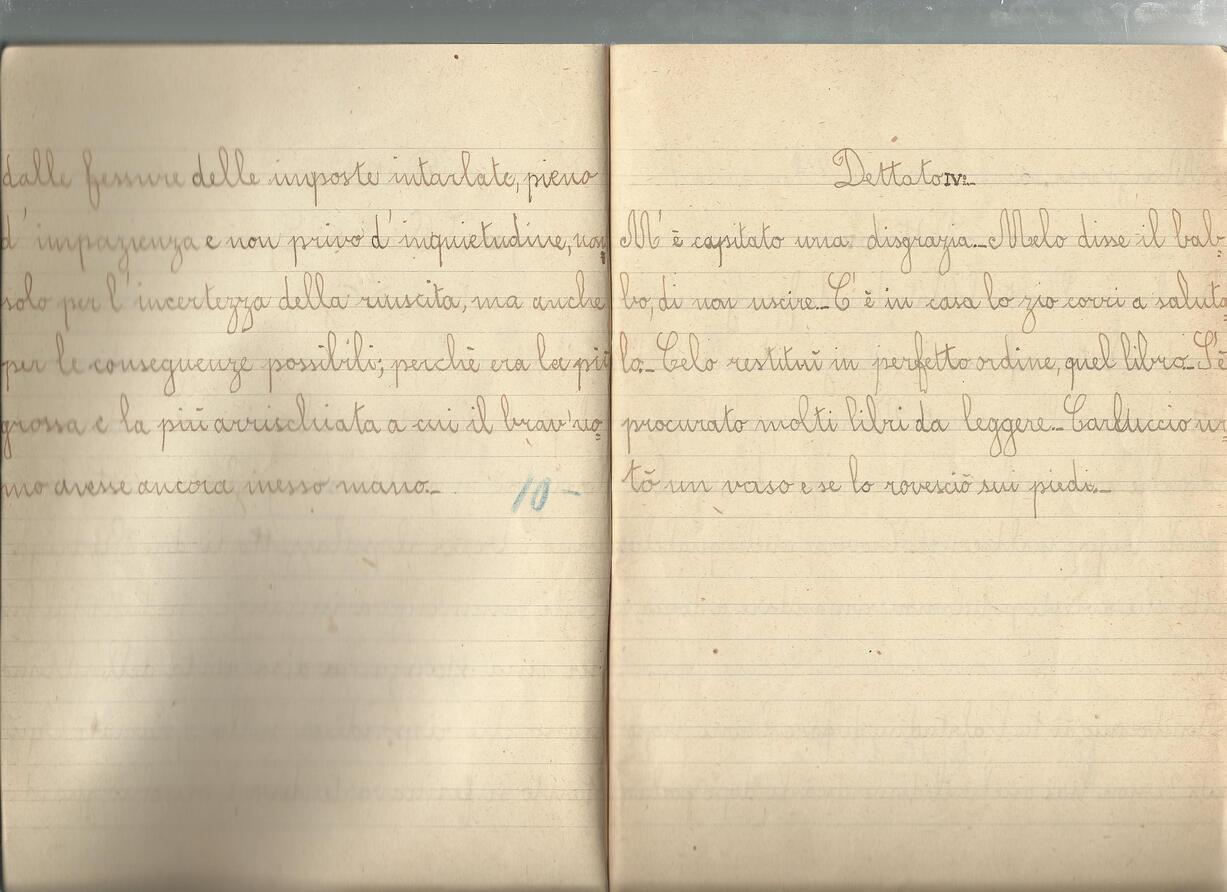 dalle fessure delle imposte intarlate, pieno
d'impazienza e non privo d'inquietudine, non
solo per l'incertezza della riuscita, ma anche
per le conseguenze possibili; perchè era la più
grossa e la più arrischiata a cui il brav'uo=
mo avesse ancora messo mano._
10-
Dettato IV:_
M'è capitato una disgrazia._ Melo disse il bab=
bo, di non uscire._ C'è in casa lo zio corri a saluta=
lo._ Celo restituì in perfetto ordine, quel libro._ S'è
procurato molti libri da leggere._ Carluccio ur=
tò un vaso e se lo rovesciò sui piedi._